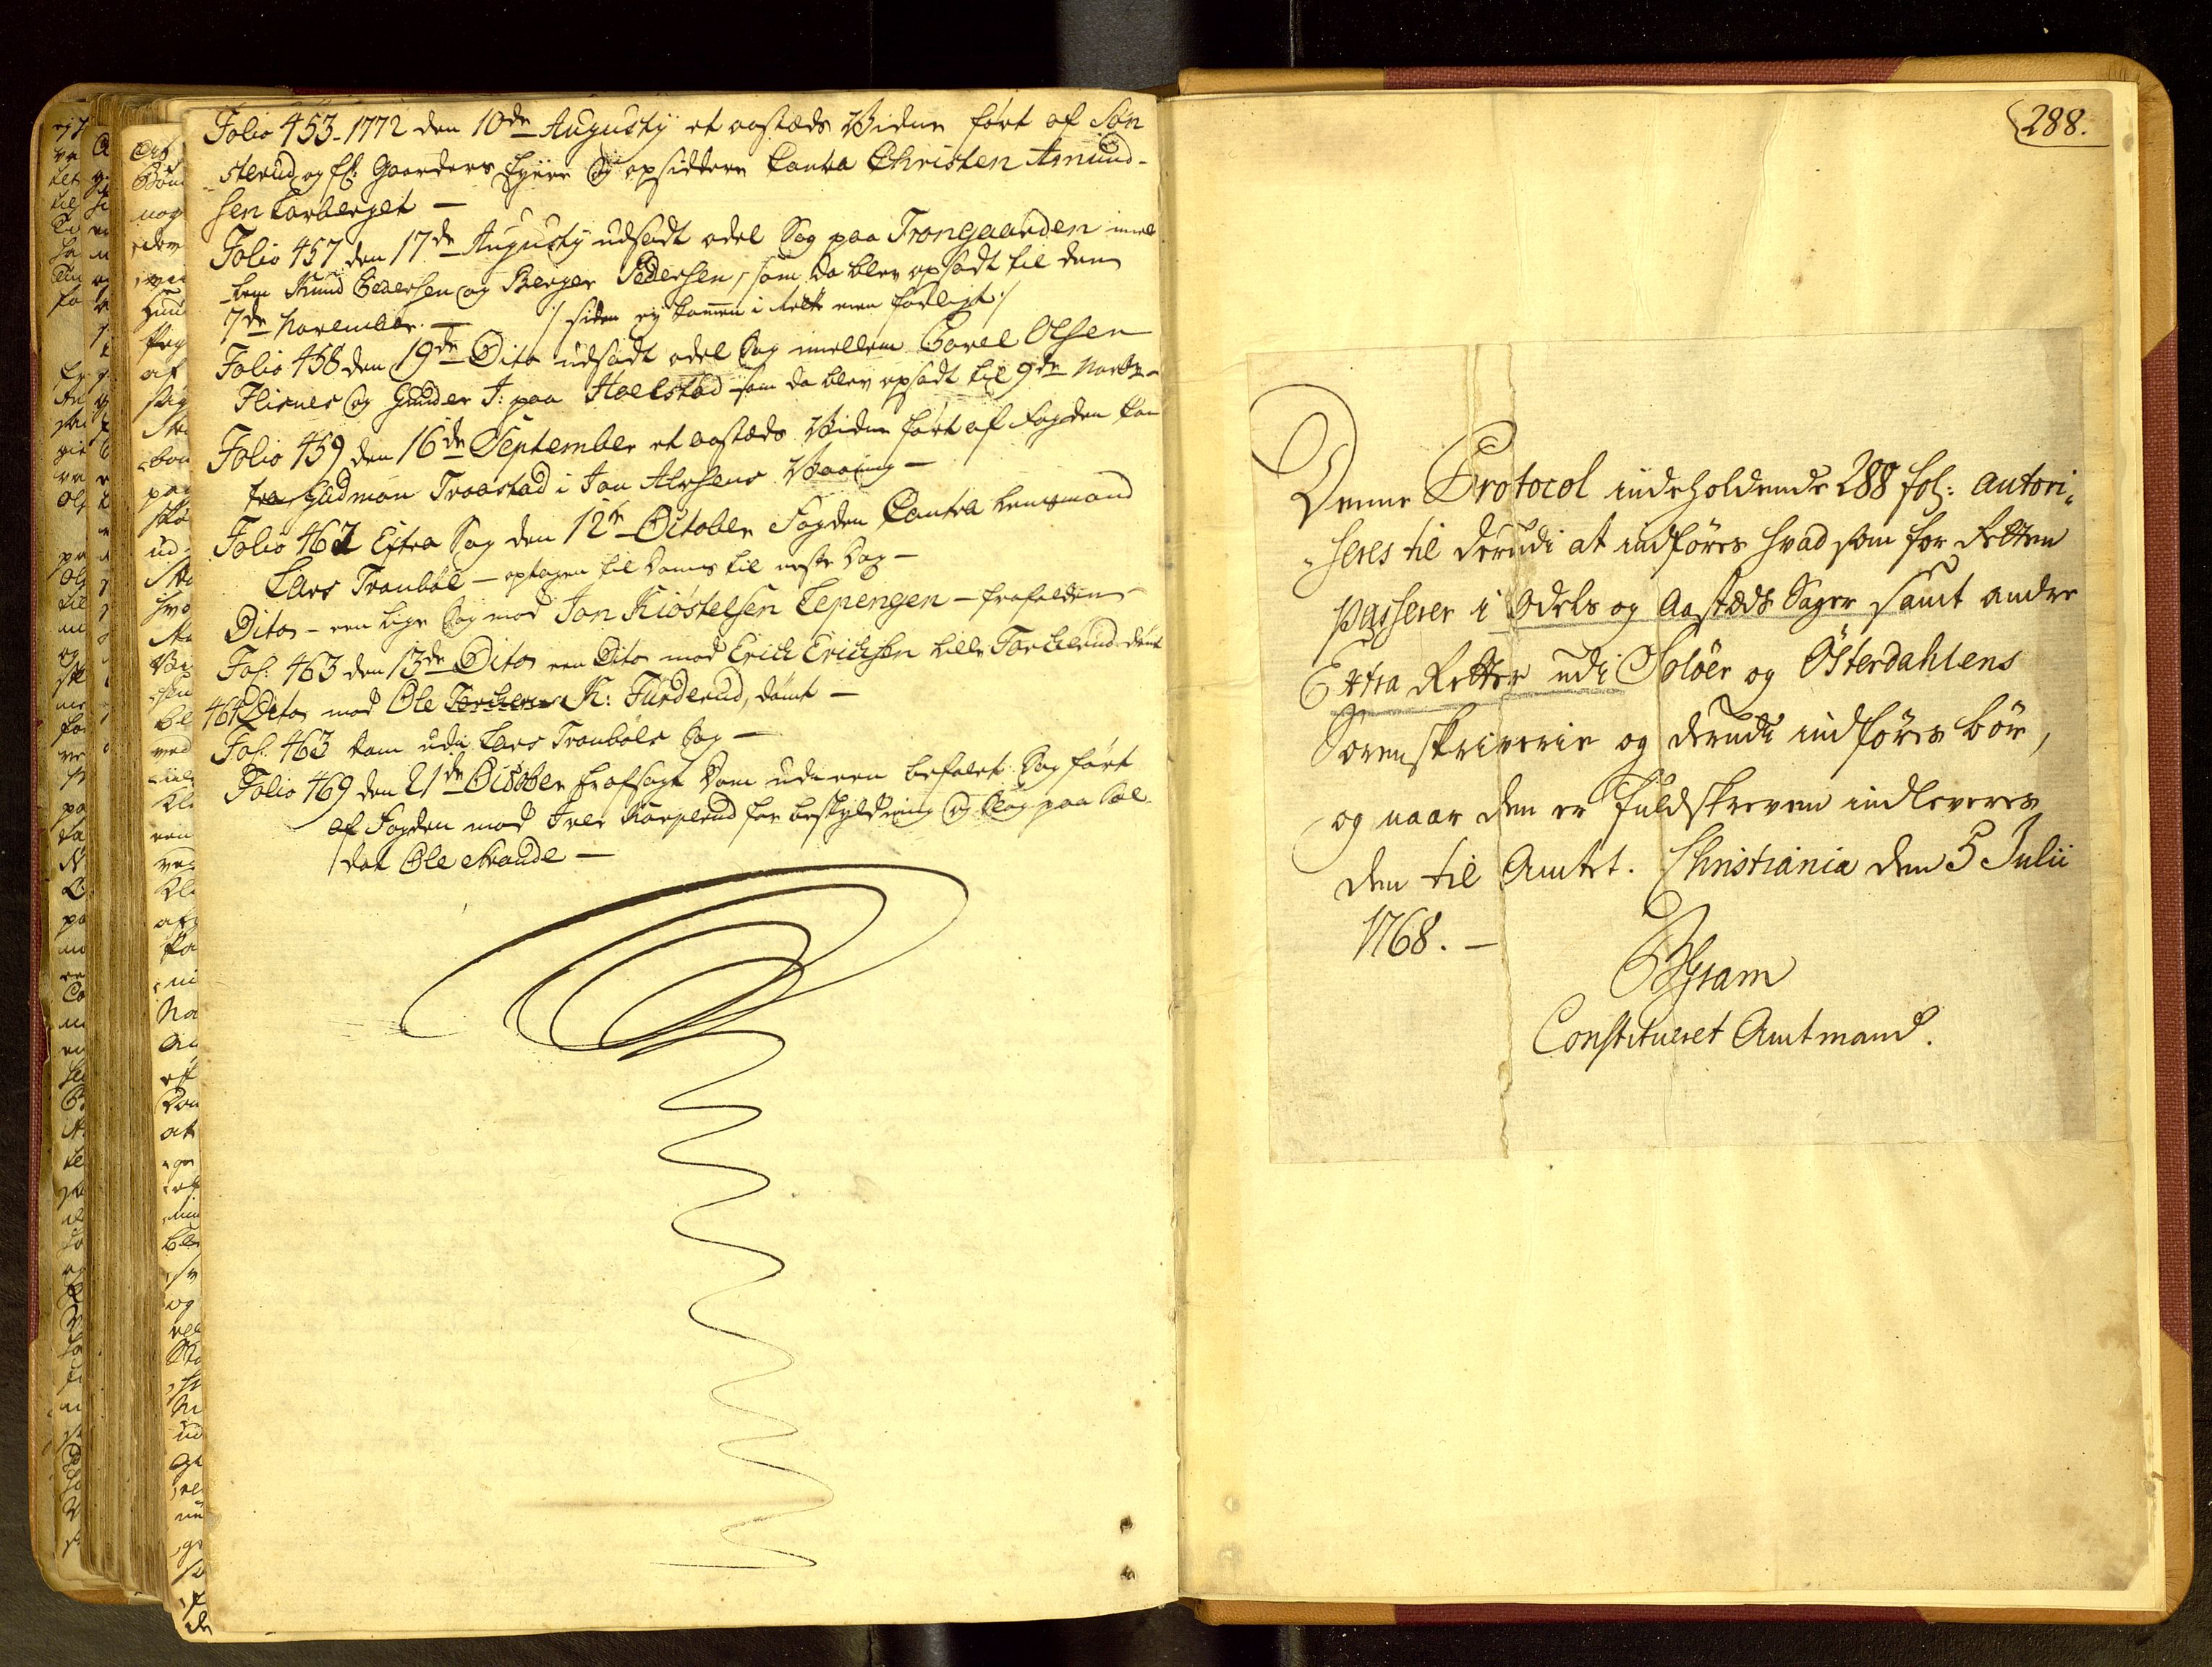 Folio 453-1772 den 10de Augusty et aastæds Vidne ført af Søn
sterud og fl: Gaarders Eyere og opsiddere Contra Christen Amund-
sen Torberget —
Folio 457 den 17de Augusty udsadt odel Sag paa Trongaarden imel
lem Knud Pedersen og Berger Pedersen, som da blev opsadt til den
7de November. — /: siden ey kommen i Rette men forligt :/
Folio 458 den 19de Dito udsadt odel Sag imellem Povel Olsen
Flisnes og Gunder J: paa Holstad som da blev opsadt til 9de Novbr -
Folio 459 den 16de September et aastæds Vidne ført af Fogden Con
tra Gudmon Traastad i Jon Alfsens Vaaning —
Folio 462 Extra Sag den 12te October Fogden Contra Lensmand
Lars Tronbøl — optagen til Doms til neste Dag —
Dito — een lige Sag mod Jon Kiøstelsen Tepengen — frafalden —
Fol: 463 den 13de Dito een Dito mod Erich Erichsen Lille Torkerud dømt
464 Dito mod Ole K: Furderud, dømt —
Fol. 463 Dom udi Lars Tronbøls Sag —
Folio 469 den 21de October afsagt Dom udi een befalet Sag ført
af Fogden mod Iver Korperud for beskyldning og Slag paa Sol
dat Ole Strande —
288.
Denne Protocol indeholdende 288 fol: autori-
seres til derudi at indføres hvad som for Retten
passerer i Odels og Aastæds Sager samt andre
Extra Retter udi Soløer og Österdahlens
Sorenskriverie og derudi indføres bør,
og naar den er fuldskreven indleveres
den til Amtet. Christiania den 5 Julii
1768. —
Gram
Constitueret Amtmand.